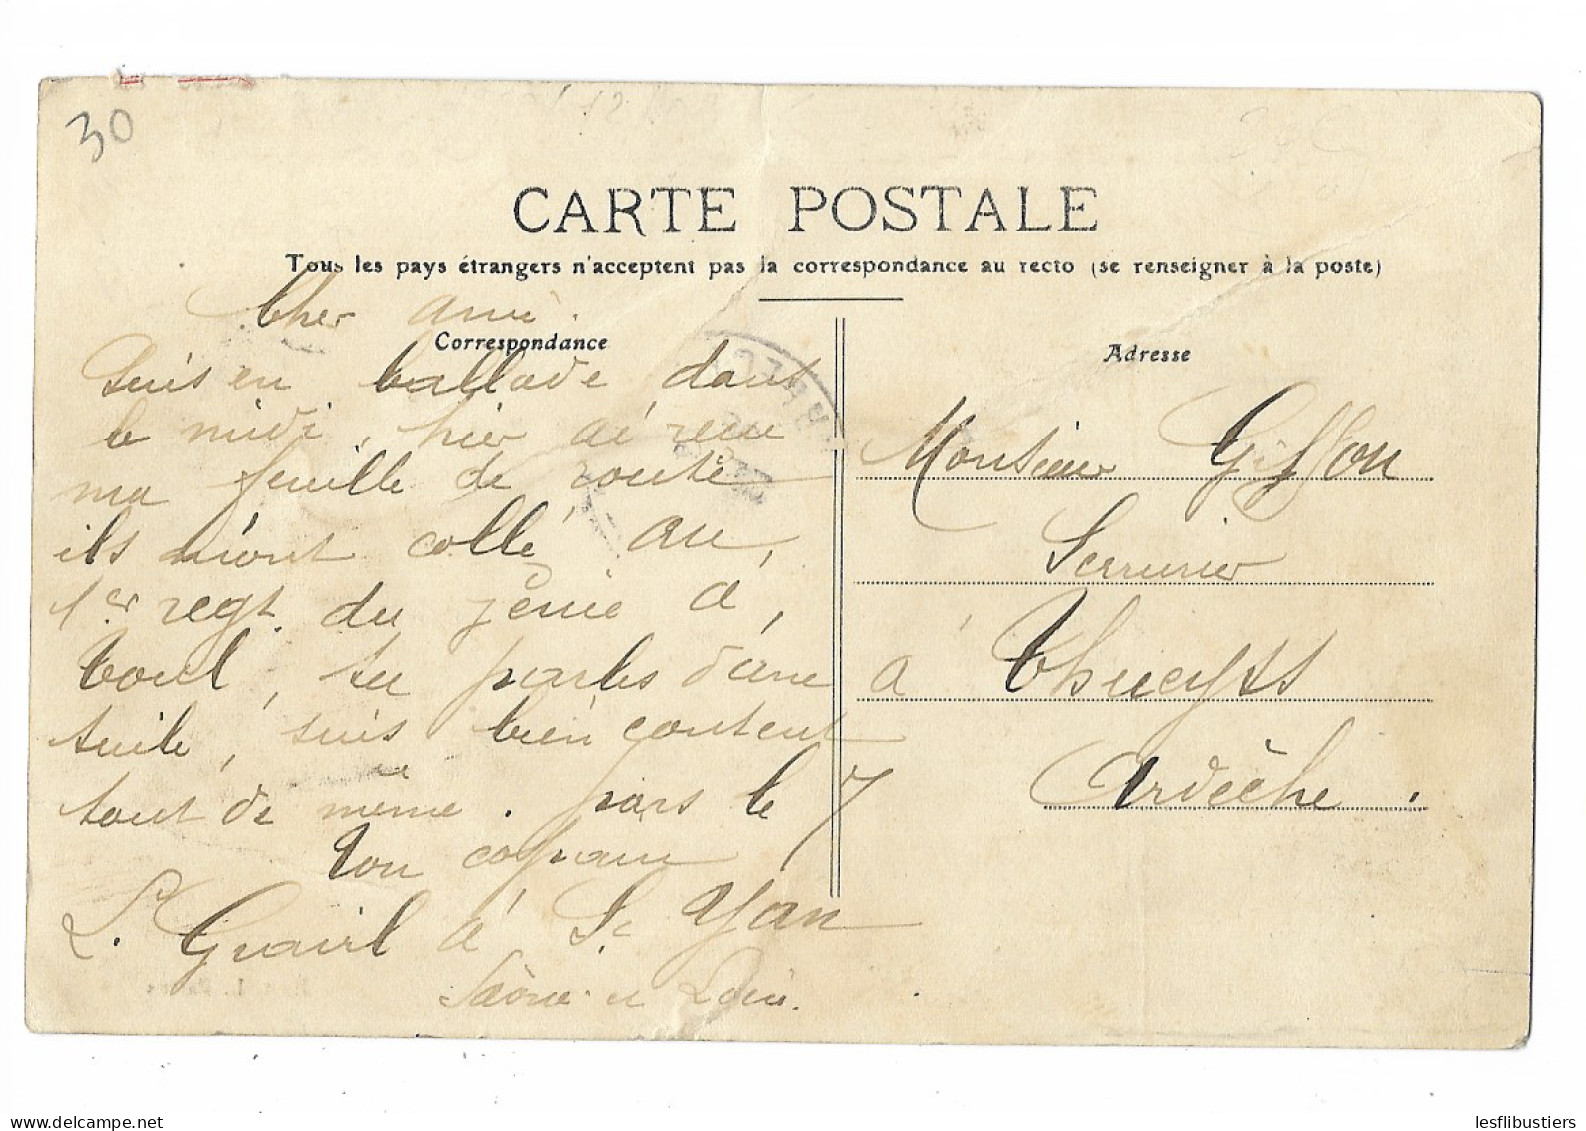 30
CARTE POSTALE
Tous les pays étrangers n'acceptent pas la correspondance au recto (se renseigner à la poste)
Cher ami.
Correspondance
Suis en ballade dant
le midi, hier ai recu
ma feuille de route
ils m'ont collé au,
1er regt. du génie à,
Toul, tu parles d'une
tuile, suis bien content
tout de même. pars le 7
Ton copain
L. à St Yan
Saône et Loire.
Adresse
Monsieur Giffon
Serrurier
à Thueyts
Ardèche.
lesflibustiers